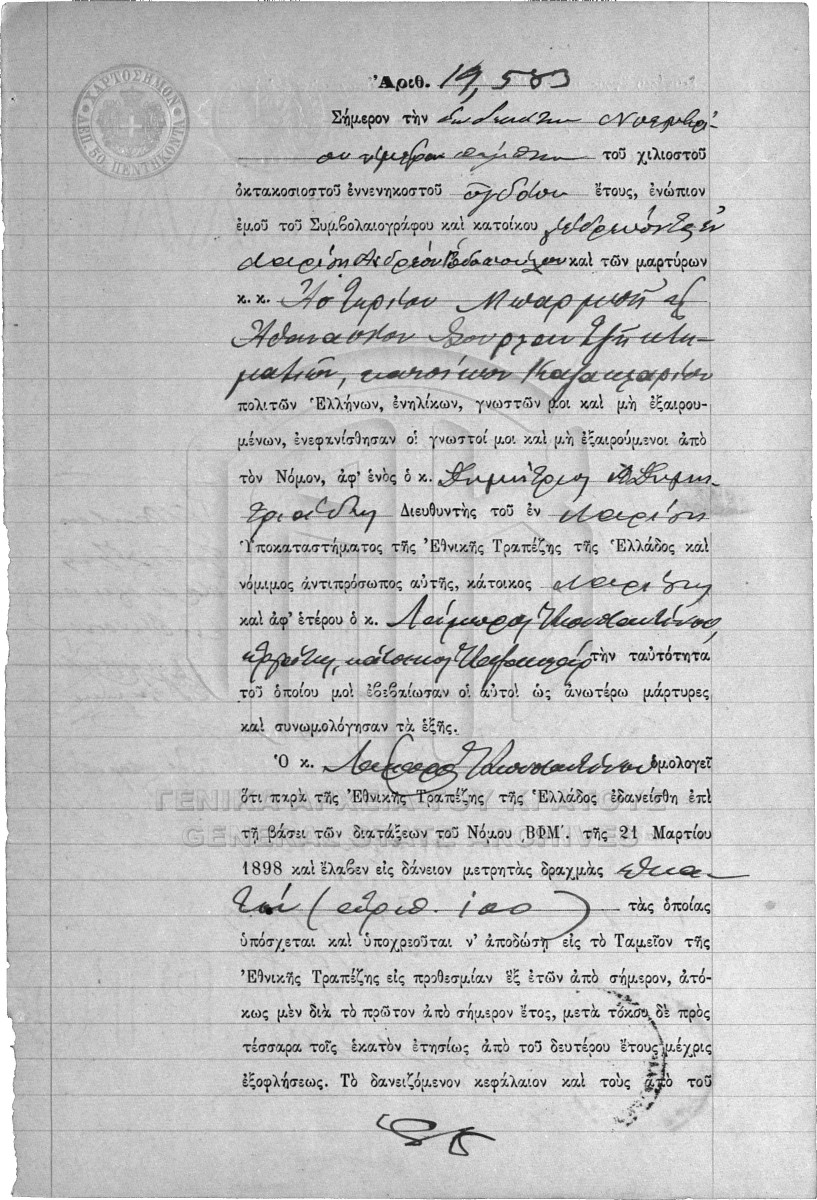 ΧΑΡΤΟΣΗΜΟΝ
ΛΕΠ. 50. ΠΕΝΤΗΚΟΝΤΑ
Ἀριθ. 19,583
Σήμερον τὴν ἑνδεκάτην Νοεμβρί-
ου ἡμέραν τοῦ χιλιοστοῦ
ὀκτακοσιοστοῦ ἐννενηκοστοῦ ὀγδόου ἔτους, ἐνώπιον
ἐμοῦ τοῦ Συμβολαιογράφου καὶ κατοίκου ἐν
Λαρίσῃ Ἀνδρέου Ροδοπούλου καὶ τῶν μαρτύρων
κ. κ. Ἀστερίου
Ἀθανασίου κτη-
ματιῶν, κατοίκων Καζακλαρίου
πολιτῶν Ἑλλήνων, ἐνηλίκων, γνωστῶν μοι καὶ μὴ ἐξαιρου-
μένων, ἐνεφανίσθησαν οἱ γνωστοί μοι καὶ μὴ ἐξαιρούμενοι ἀπὸ
τὸν Νόμον, ἀφ' ἑνὸς ὁ κ. Δημήτριος Δημη-
τριάδης Διευθυντὴς τοῦ ἐν Λαρίσῃ
Ὑποκαταστήματος τῆς Ἐθνικῆς Τραπέζης τῆς Ἑλλάδος καὶ
νόμιμος ἀντιπρόσωπος αὐτῆς, κάτοικος Λαρίσης
καὶ ἀφ' ἑτέρου ὁ κ. Λάμπρος Κωνσταντίνου,
ἐργάτης, κάτοικος Καζακλὰρ τὴν ταὐτότητα
τοῦ ὁποίου μοὶ ἐβεβαίωσαν οἱ αὐτοὶ ὡς ἀνωτέρω μάρτυρες
καὶ συνωμολόγησαν τὰ ἑξῆς.
Ὁ κ. Λάμπρος Κωνσταντίνου ὁμολογεῖ
ΓΕΝΙΚΑ ΑΡΧΕΙΑ ΤΟΥ ΚΡΑΤΟΥΣ
ὅτι παρὰ τῆς Ἐθνικῆς Τραπέζης τῆς Ἑλλάδος ἐδανείσθη ἐπὶ
GENERAL STATE ARCHIVES
τῇ βάσει τῶν διατάξεων τοῦ Νόμου ΒΦΜʹ. τῆς 21 Μαρτίου
1898 καὶ ἔλαβεν εἰς δάνειον μετρητὰς δραχμὰς ἑκα-
τὸν (ἀριθ. 100) τὰς ὁποίας
ὑπόσχεται καὶ ὑποχρεοῦται ν' ἀποδώσῃ εἰς τὸ Ταμεῖον τῆς
Ἐθνικῆς Τραπέζης εἰς προθεσμίαν ἓξ ἐτῶν ἀπὸ σήμερον, ἀτό-
κως μὲν διὰ τὸ πρῶτον ἀπὸ σήμερον ἔτος, μετὰ τόκου δὲ πρὸς
τέσσαρα τοῖς ἑκατὸν ἐτησίως ἀπὸ τοῦ δευτέρου ἔτους μέχρις
ἐξοφλήσεως. Τὸ δανειζόμενον κεφάλαιον καὶ τοὺς ἀπὸ τοῦ